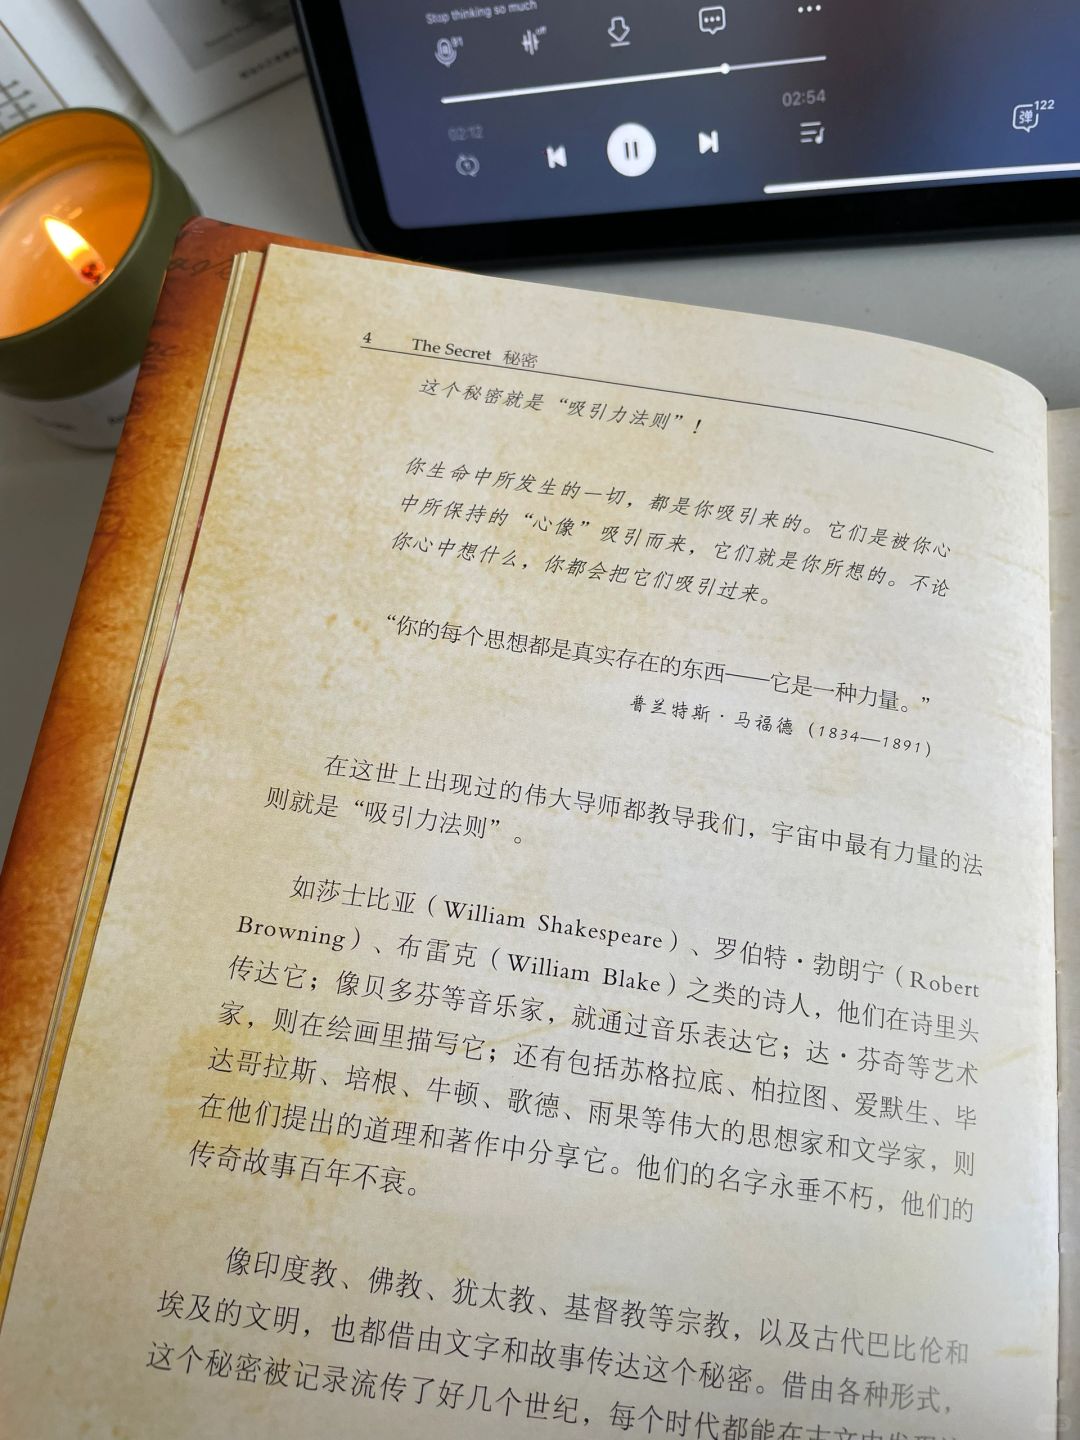 Stop thinking so much
02:12
02:54
弹
122
4 The Secret 秘密
这个秘密就是“吸引力法则”！
你生命中所发生的一切，都是你吸引来的。它们是被你心
中所保持的“心像”吸引而来，它们就是你所想的。不论
你心中想什么，你都会把它们吸引过来。
“你的每个思想都是真实存在的东西——它是一种力量。”
普兰特斯·马福德（1834—1891）
在这世上出现过的伟大导师都教导我们，宇宙中最有力量的法
则就是“吸引力法则”。
如莎士比亚（William Shakespeare）、罗伯特·勃朗宁（Robert
Browning）、布雷克（William Blake）之类的诗人，他们在诗里头
传达它；像贝多芬等音乐家，就通过音乐表达它；达·芬奇等艺术
家，则在绘画里描写它；还有包括苏格拉底、柏拉图、爱默生、毕
达哥拉斯、培根、牛顿、歌德、雨果等伟大的思想家和文学家，则
在他们提出的道理和著作中分享它。他们的名字永垂不朽，他们的
传奇故事百年不衰。
像印度教、佛教、犹太教、基督教等宗教，以及古代巴比伦和
埃及的文明，也都借由文字和故事传达这个秘密。借由各种形式，
这个秘密被记录流传了好几个世纪，每个时代都能在古文中发现